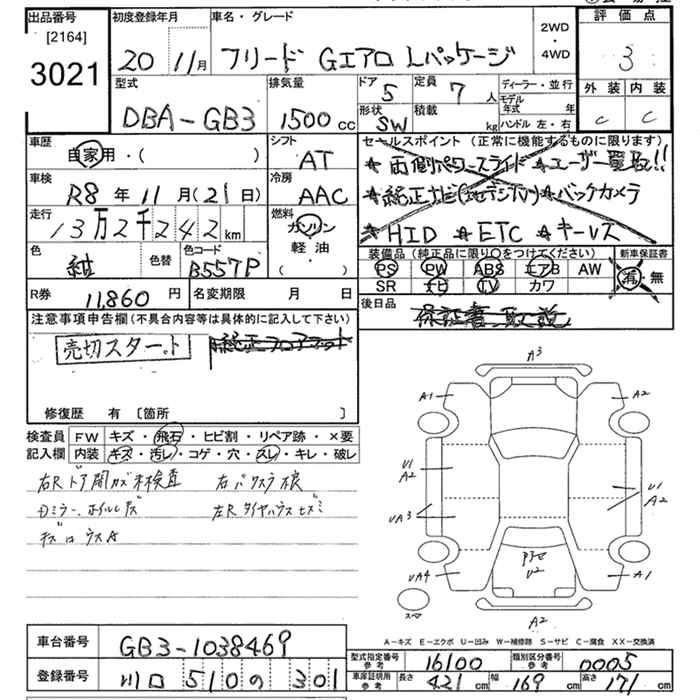 出品番号
[2164]
3021
初度登録年月
20 11月
車名・グレード
フリード Gエアロ Lパッケージ
2WD
・
4WD
評価点
3
外装 内装
C C
型式
DBA-GB3
排気量
1500 cc
ドア 5
定員 7 人
形状 SW
積載 kg
ディーラー・並行
モデル年式 年
ハンドル 左・右
車歴
自家用・( )
シフト
AT
車検
R8 年 11 月 (21 日)
冷房
AAC
走行
13万2千242 km
燃料
ガソリン
軽油
・( )
色
紺
色替
色コード
B557P
セールスポイント (正常に機能するものに限ります)
★両側パワースライド ★ユーザー買取!!
★純正ナビ(地デジTV) ★バックカメラ
★HID ★ETC ★キーレス
装備品 (純正品に限り○をつけてください)
PS PW ABS エアB AW
SR ナビ TV カワ
新車保証書
有・無
R券 11,860 円
名変期限 月 日
後日品
保証書、取説
注意事項申告欄(不具合内容等は具体的に記入して下さい)
売切スタート
純正フロアマット
修復歴 有 〔箇所 〕
検査員記入欄
FW キズ・飛石・ヒビ割・リペア跡・×要
内装 キズ・汚レ・コゲ・穴・スレ・キレ・破レ
右Rドア開カズ未検査
Dミラー、ホイルキズ
キズ
A3
A1
A2
U1
A2
UA3
U1
A2
UA4
U2
A1
A2
スペア
A-キズ E-エクボ U-凹み W-補修跡 S-サビ C-腐食 XX-交換済
車台番号
GB3-1038469
登録番号
川口 510 の 301
型式指定番号参考
16100
類別区分番号参考
0005
車庫証明用参考
長さ 421 cm
幅 169 cm
高さ 171 cm